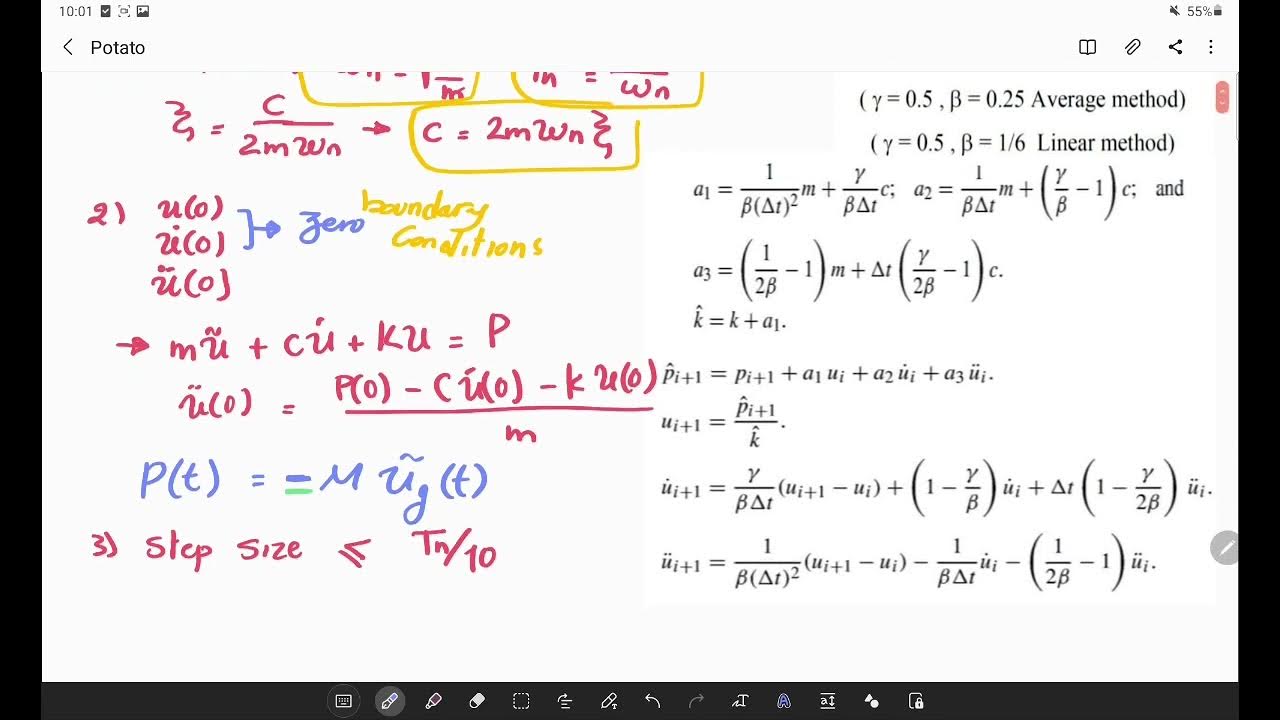 10:01 55%
Potato
ωn = √ m Tn = ωn
ξ = C / 2mωn → C = 2mωnξ
2) u(0)
u̇(0) } → zero boundary conditions
ü(0)
→ mü + Cu̇ + Ku = P
ü(0) = (P(0) - Cu̇(0) - k u(0)) / m
P(t) = -M ü_g(t)
3) Step size ≤ Tn/10
( γ = 0.5 , β = 0.25 Average method)
( γ = 0.5 , β = 1/6 Linear method)
a₁ = 1/(β(Δt)²) m + γ/(βΔt) c; a₂ = 1/(βΔt) m + (γ/β − 1) c; and
a₃ = (1/(2β) − 1) m + Δt (γ/(2β) − 1) c.
k̂ = k + a₁.
p̂ᵢ₊₁ = pᵢ₊₁ + a₁ uᵢ + a₂ u̇ᵢ + a₃ üᵢ.
uᵢ₊₁ = p̂ᵢ₊₁ / k̂.
u̇ᵢ₊₁ = γ/(βΔt) (uᵢ₊₁ − uᵢ) + (1 − γ/β) u̇ᵢ + Δt (1 − γ/(2β)) üᵢ.
üᵢ₊₁ = 1/(β(Δt)²) (uᵢ₊₁ − uᵢ) − 1/(βΔt) u̇ᵢ − (1/(2β) − 1) üᵢ.